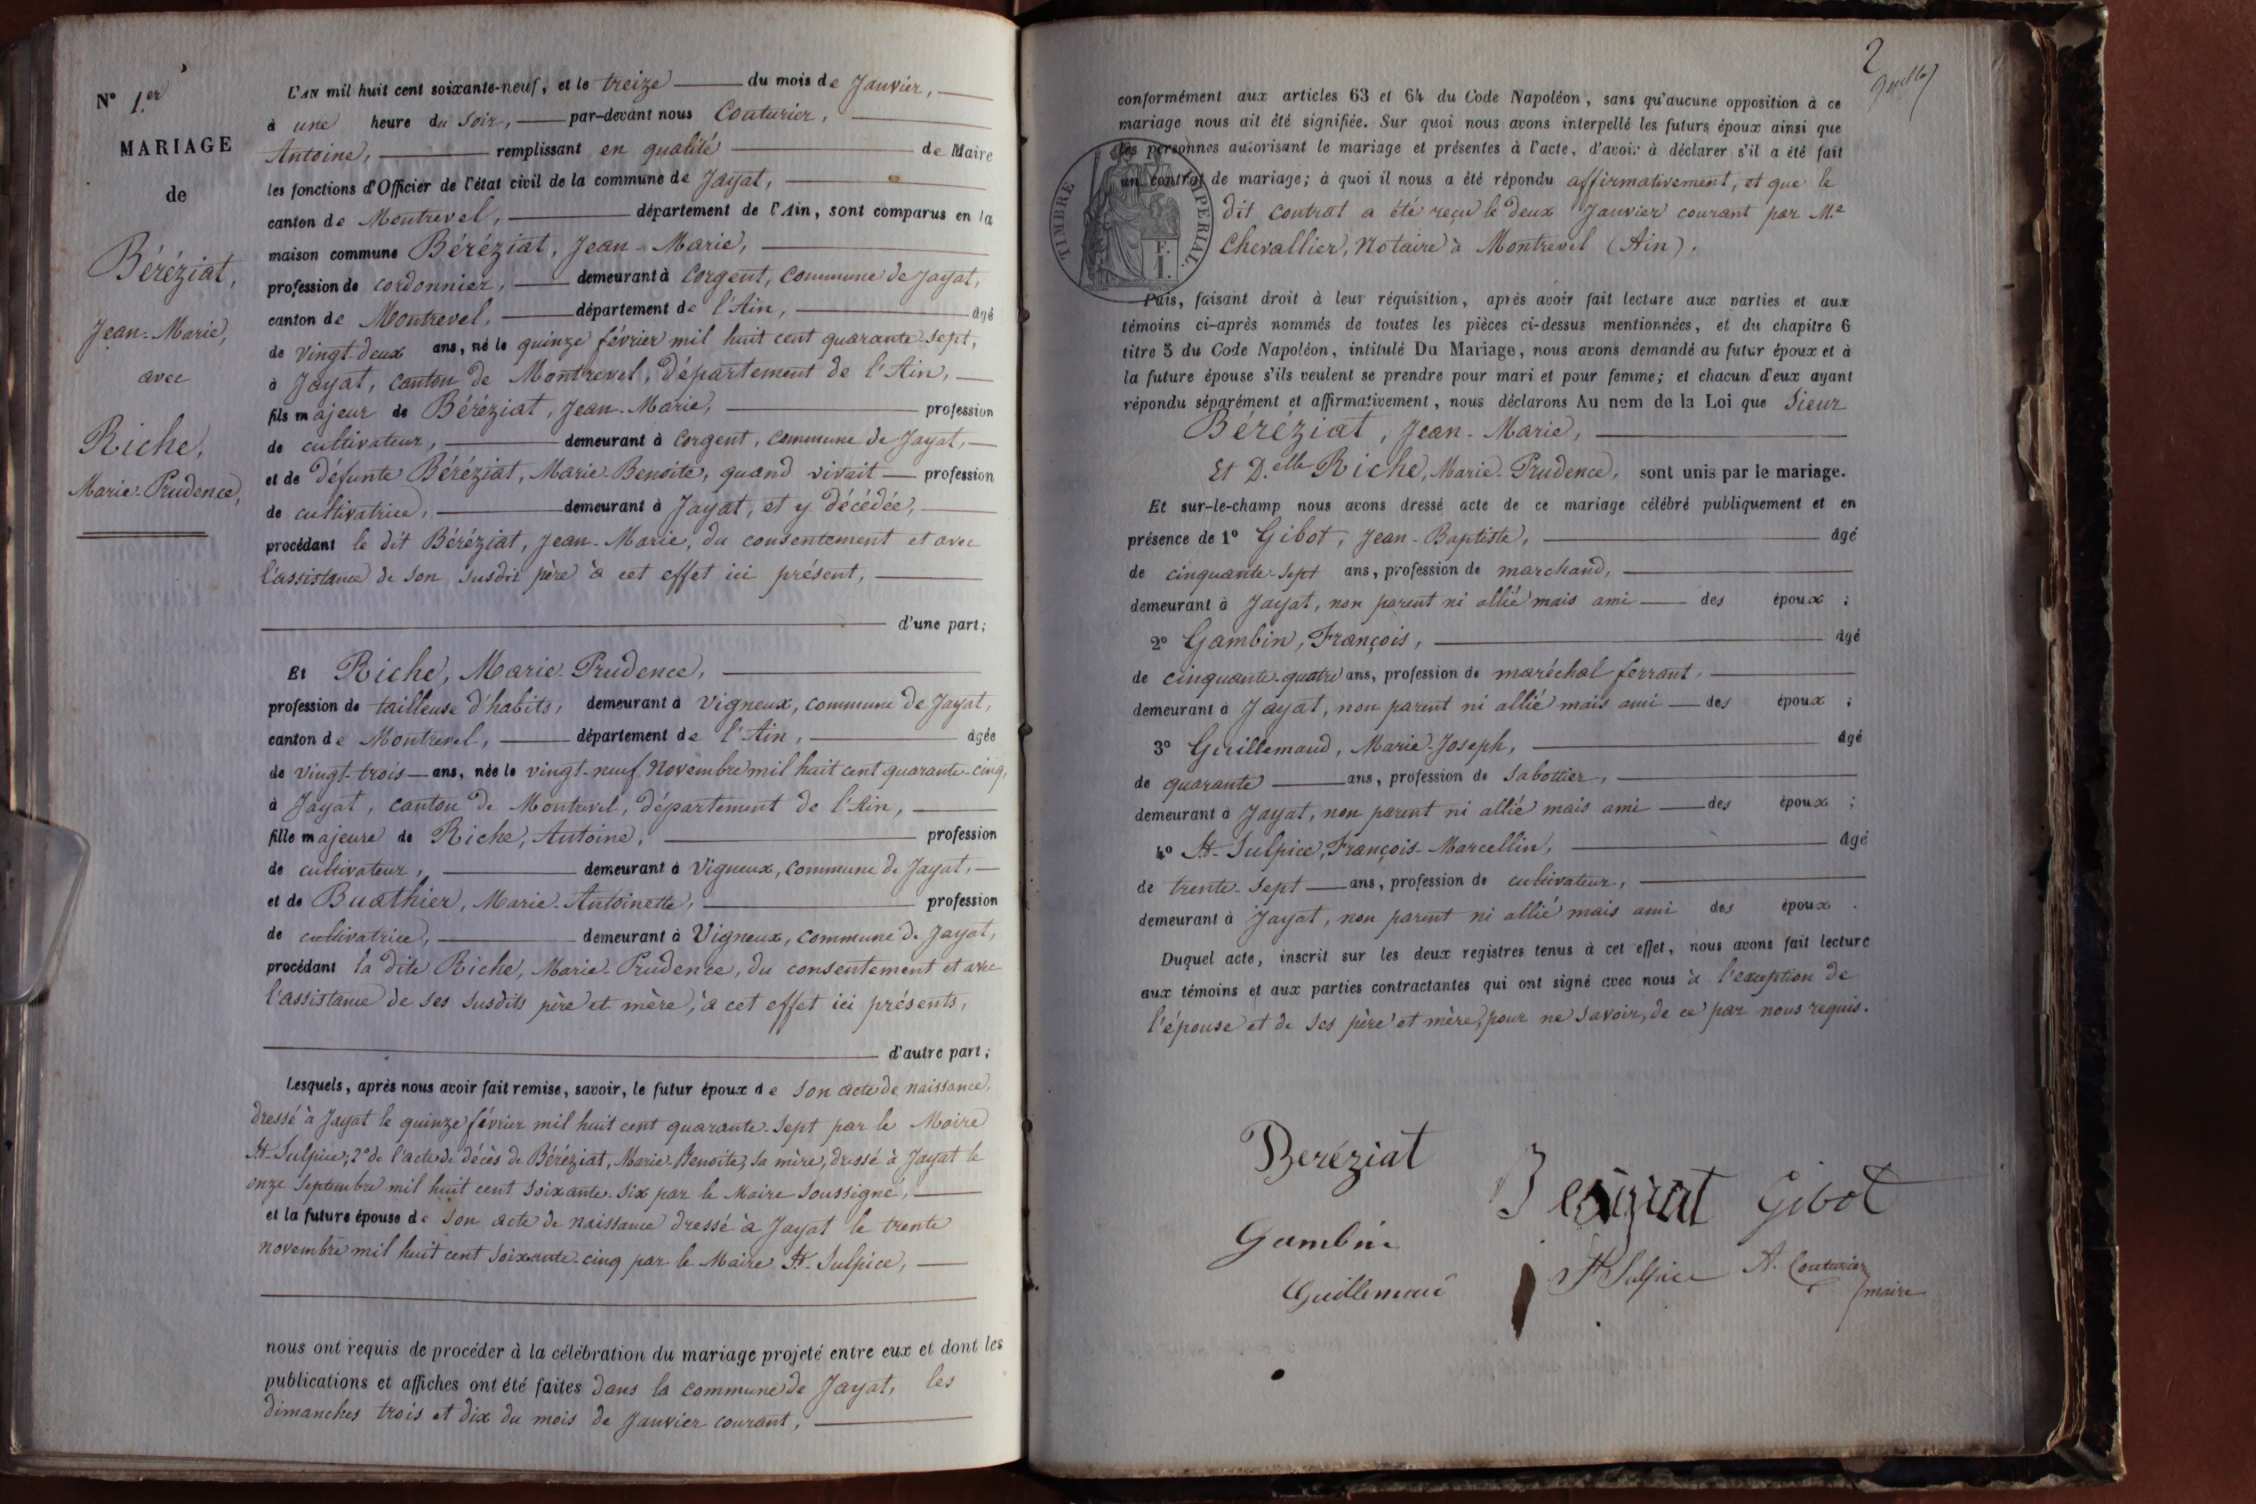 N° 1.er
MARIAGE
de
Béréziat,
Jean-Marie,
avec
Riche,
Marie-Prudence,
L'AN mil huit cent soixante-neuf, et le treize du mois de Janvier,
à une heure du soir, par-devant nous Couturier,
Antoine, remplissant en qualité de Maire
les fonctions d'Officier de l'état civil de la commune de Jayat,
canton de Montrevel, département de l'Ain, sont comparus en la
maison commune Béréziat, Jean-Marie,
profession de cordonnier, demeurant à Corgent, commune de Jayat,
canton de Montrevel, département de l'Ain, âgé
de vingt-deux ans, né le quinze février mil huit cent quarante-sept,
à Jayat, canton de Montrevel, département de l'Ain,
fils majeur de Béréziat, Jean-Marie, profession
de cultivateur, demeurant à Corgent, commune de Jayat,
et de défunte Béréziat, Marie-Benoite, quand vivait profession
de cultivatrice, demeurant à Jayat, et y décédée,
procédant le dit Béréziat, Jean-Marie, du consentement et avec
l'assistance de son susdit père à cet effet ici présent,
d'une part;
Et Riche, Marie-Prudence,
profession de tailleuse d'habits, demeurant à Vigneux, commune de Jayat,
canton de Montrevel, département de l'Ain, âgée
de vingt-trois ans, née le vingt-neuf Novembre mil huit cent quarante-cinq,
à Jayat, canton de Montrevel, département de l'Ain,
fille majeure de Riche, Antoine, profession
de cultivateur, demeurant à Vigneux, commune de Jayat,
et de Buathier, Marie-Antoinette, profession
de cultivatrice, demeurant à Vigneux, commune de Jayat,
procédant la dite Riche, Marie-Prudence, du consentement et avec
l'assistance de ses susdits père et mère, à cet effet ici présents,
d'autre part;
Lesquels, après nous avoir fait remise, savoir, le futur époux de son acte de naissance,
dressé à Jayat le quinze février mil huit cent quarante-sept par le Maire
St-Sulpice; 2° de l'acte de décès de Béréziat, Marie-Benoite, sa mère, dressé à Jayat le
onze Septembre mil huit cent soixante-six par le Maire soussigné,
et la future épouse de son acte de naissance dressé à Jayat le trente
novembre mil huit cent soixante-cinq par le Maire St-Sulpice,
nous ont requis de procéder à la célébration du mariage projeté entre eux et dont les
publications et affiches ont été faites dans la commune de Jayat, les
dimanches trois et dix du mois de Janvier courant,
2
conformément aux articles 63 et 64 du Code Napoléon, sans qu'aucune opposition à ce
mariage nous ait été signifiée. Sur quoi nous avons interpellé les futurs époux ainsi que
les personnes autorisant le mariage et présentes à l'acte, d'avoir à déclarer s'il a été fait
un contrat de mariage; à quoi il nous a été répondu affirmativement, et que le
dit contrat a été reçu le deux Janvier courant par M.e
Chevallier, Notaire à Montrevel (Ain).
TIMBRE IMPERIAL
F. I.
Puis, faisant droit à leur réquisition, après avoir fait lecture aux parties et aux
témoins ci-après nommés de toutes les pièces ci-dessus mentionnées, et du chapitre 6
titre 5 du Code Napoléon, intitulé Du Mariage, nous avons demandé au futur époux et à
la future épouse s'ils veulent se prendre pour mari et pour femme; et chacun d'eux ayant
répondu séparément et affirmativement, nous déclarons Au nom de la Loi que Sieur
Béréziat, Jean-Marie,
Et D.elle Riche, Marie-Prudence, sont unis par le mariage.
Et sur-le-champ nous avons dressé acte de ce mariage célébré publiquement et en
présence de 1° Gibot, Jean-Baptiste, âgé
de cinquante-sept ans, profession de marchand,
demeurant à Jayat, non parent ni allié mais ami des époux;
2° Gambin, François, âgé
de cinquante-quatre ans, profession de maréchal ferrant,
demeurant à Jayat, non parent ni allié mais ami des époux;
3° Guillemaud, Marie-Joseph, âgé
de quarante ans, profession de sabottier,
demeurant à Jayat, non parent ni allié mais ami des époux;
4° St-Sulpice, François-Marcellin, âgé
de trente-sept ans, profession de cultivateur,
demeurant à Jayat, non parent ni allié mais ami des époux.
Duquel acte, inscrit sur les deux registres tenus à cet effet, nous avons fait lecture
aux témoins et aux parties contractantes qui ont signé avec nous à l'exception de
l'épouse et de ses père et mère, pour ne savoir, de ce par nous requis.
Beréziat
Bereziat Gibot
Gambin
St Sulpice A. Couturier
maire
Guillemaud